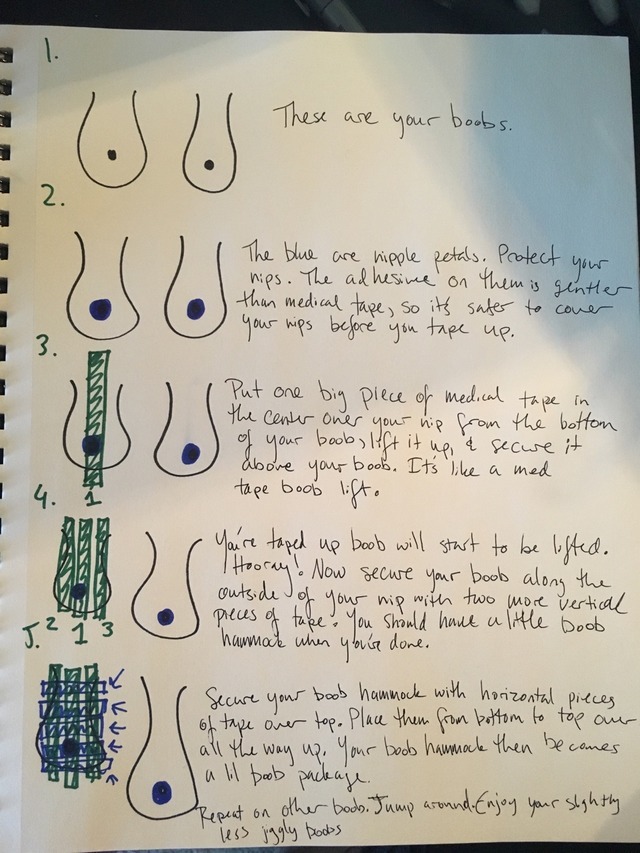 1.
These are your boobs.
2.
The blue are nipple petals. Protect your
nips. The adhesive on them is gentler
than medical tape, so it's safer to cover
your nips before you tape up.
3.
Put one big piece of medical tape in
the center over your nip from the bottom
of your boob, lift it up, & secure it
above your boob. It's like a med
tape boob lift.
1
4.
You're taped up boob will start to be lifted.
Hooray! Now secure your boob along the
outside of your nip with two more vertical
pieces of tape. You should have a little boob
hammock when you're done.
2 1 3
5.
Secure your boob hammock with horizontal pieces
of tape over top. Place them from bottom to top over
all the way up. Your boob hammock then becomes
a lil boob package.
Repeat on other boob. Jump around. Enjoy your slightly
less jiggly boobs